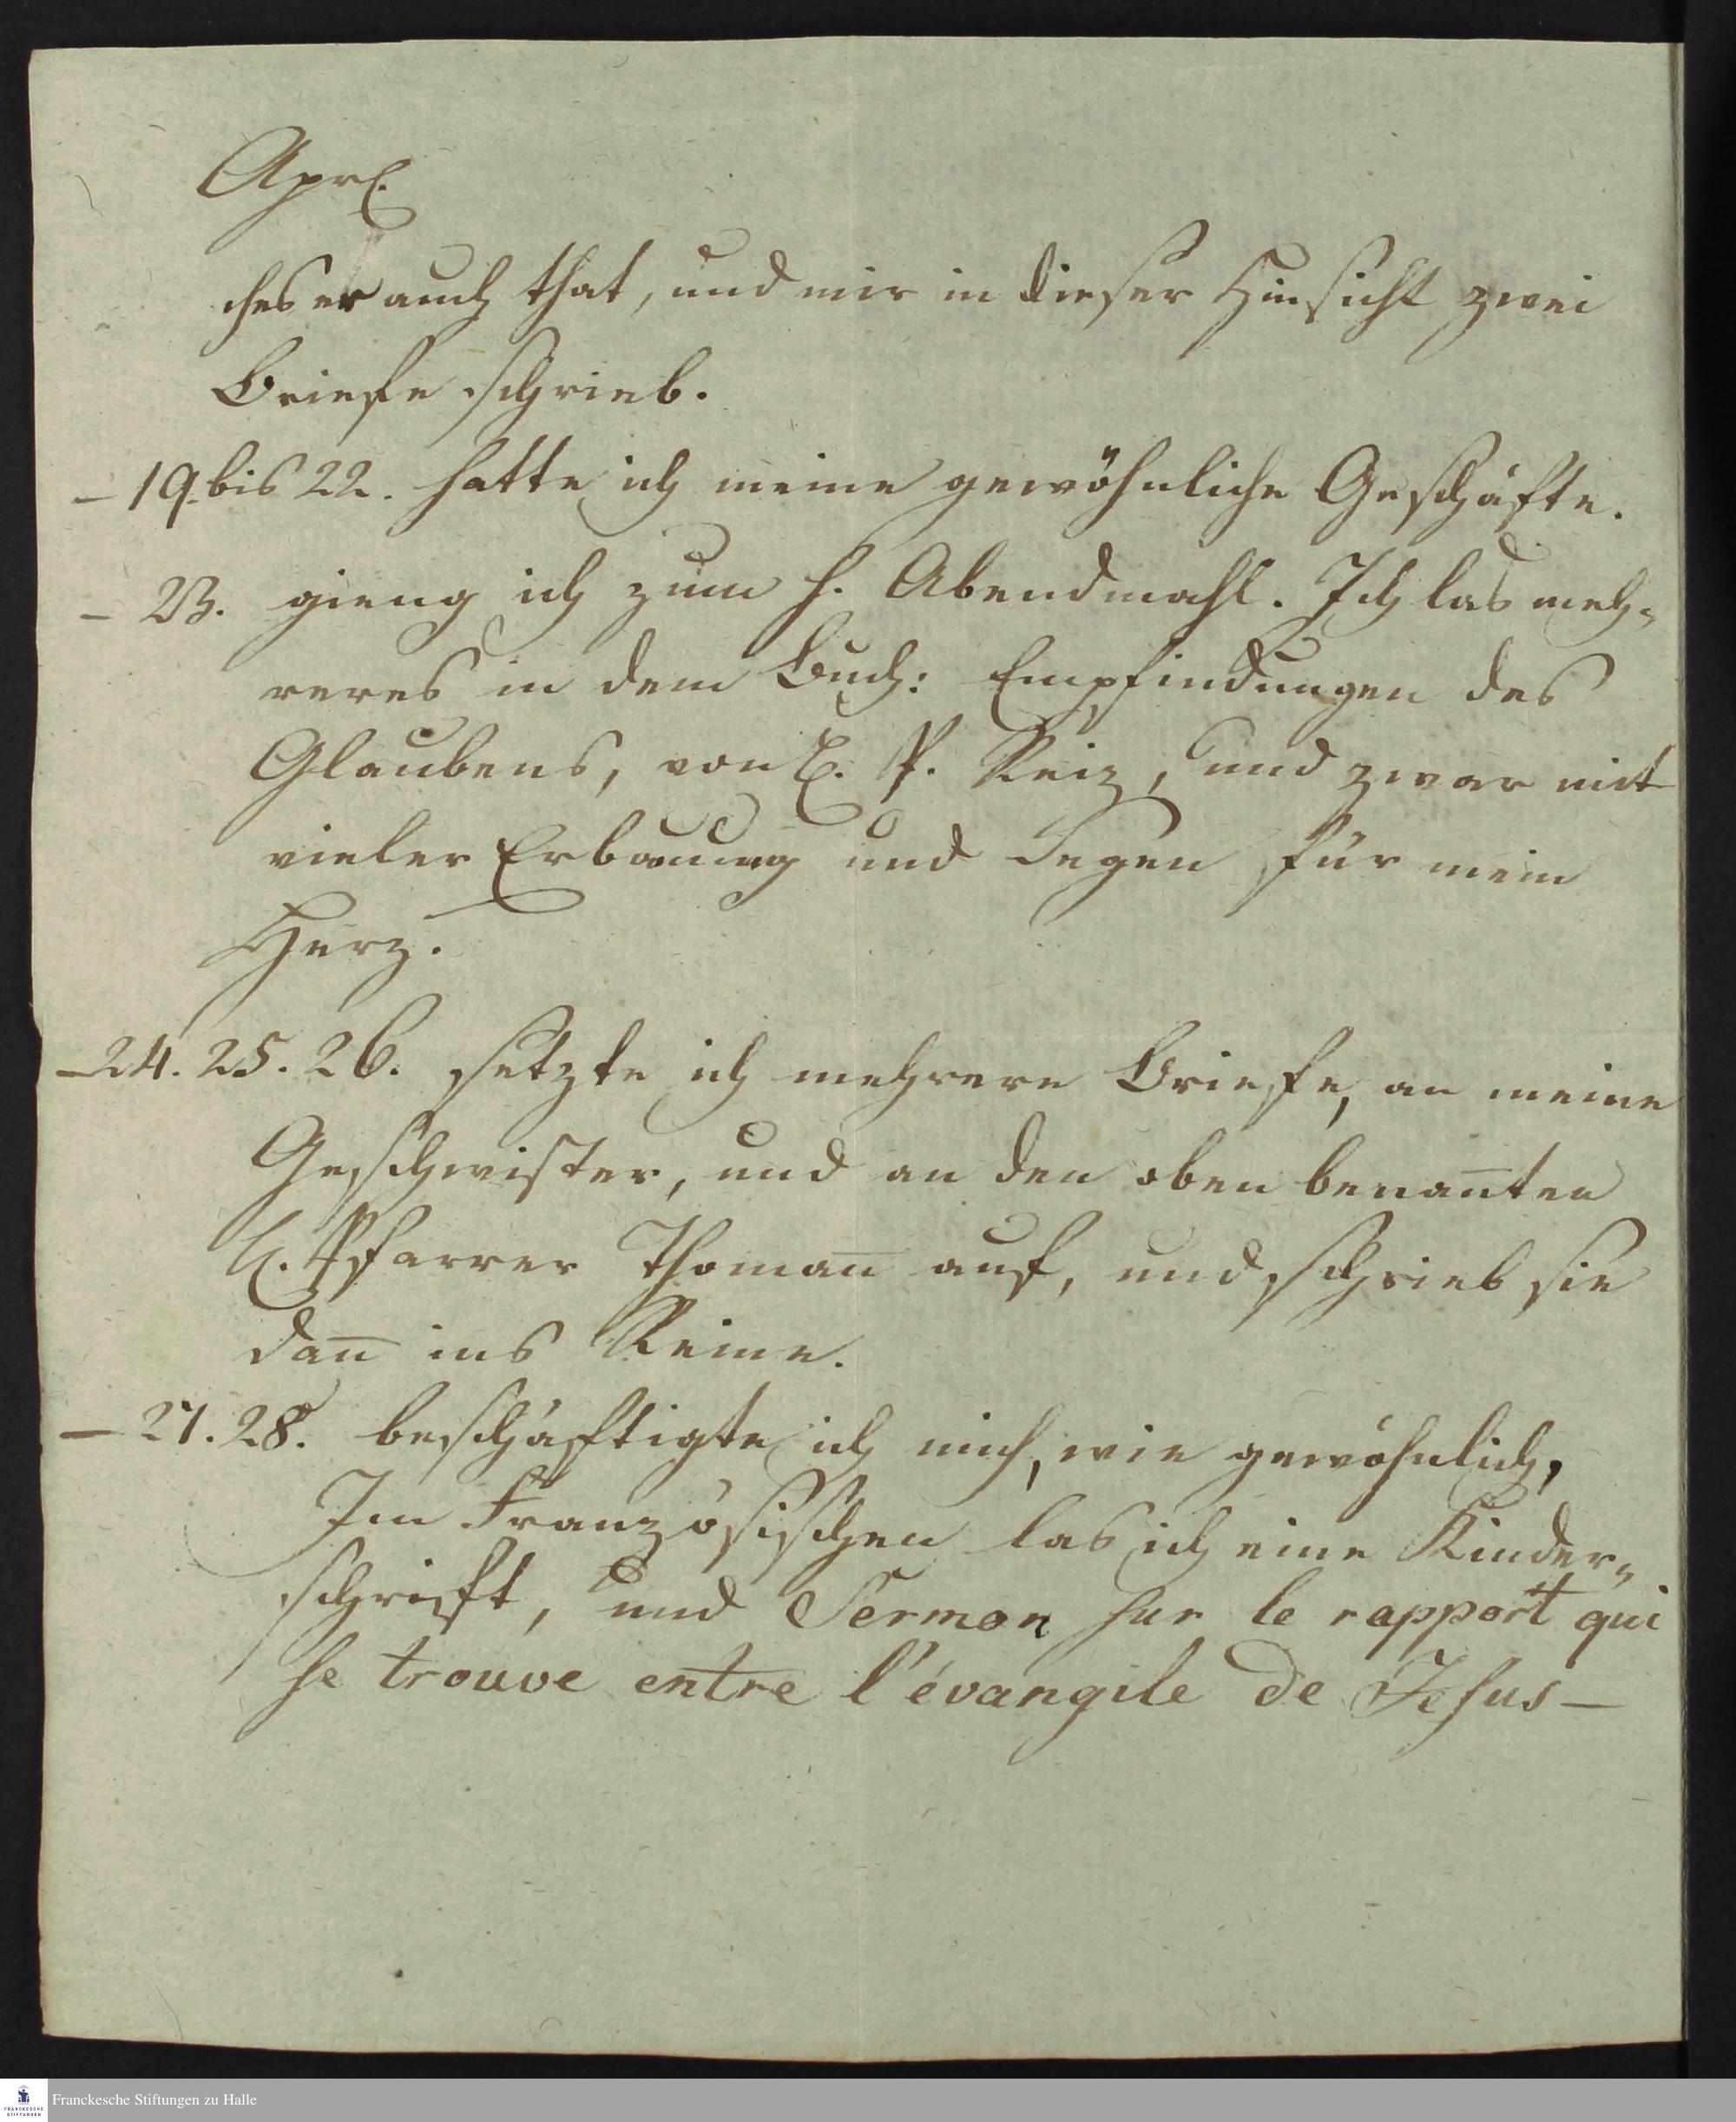 Aprl.
ches er auch that, und mir in dieser Hinsicht zwei
Briefe schrieb.
– 19. bis 22. hatte ich meine gewöhnliche Geschäfte.
– 23. gieng ich zum h. Abendmahl. Ich las meh-
reres in dem Buch: Empfindungen des
Glaubens, von H. P. Reiz, und zwar mit
vieler Erbauung und Segen für mein
Herz.
– 24. 25. 26. setzte ich mehrere Briefe, an meine
Geschwister, und an den oben benan̄ten
H. Pfarrer Thoman̄ auf, und schrieb sie
dan̄ ins Reine.
– 27. 28. beschäftigte ich mich, wie gewöhnlich,
Im Französischen las ich eine Kinder-
schrift, und Sermon sur le rapport qui
se trouve entre l'évangile de Jesus –
Franckesche Stiftungen zu Halle
FRANCKESCHE
STIFTUNGEN